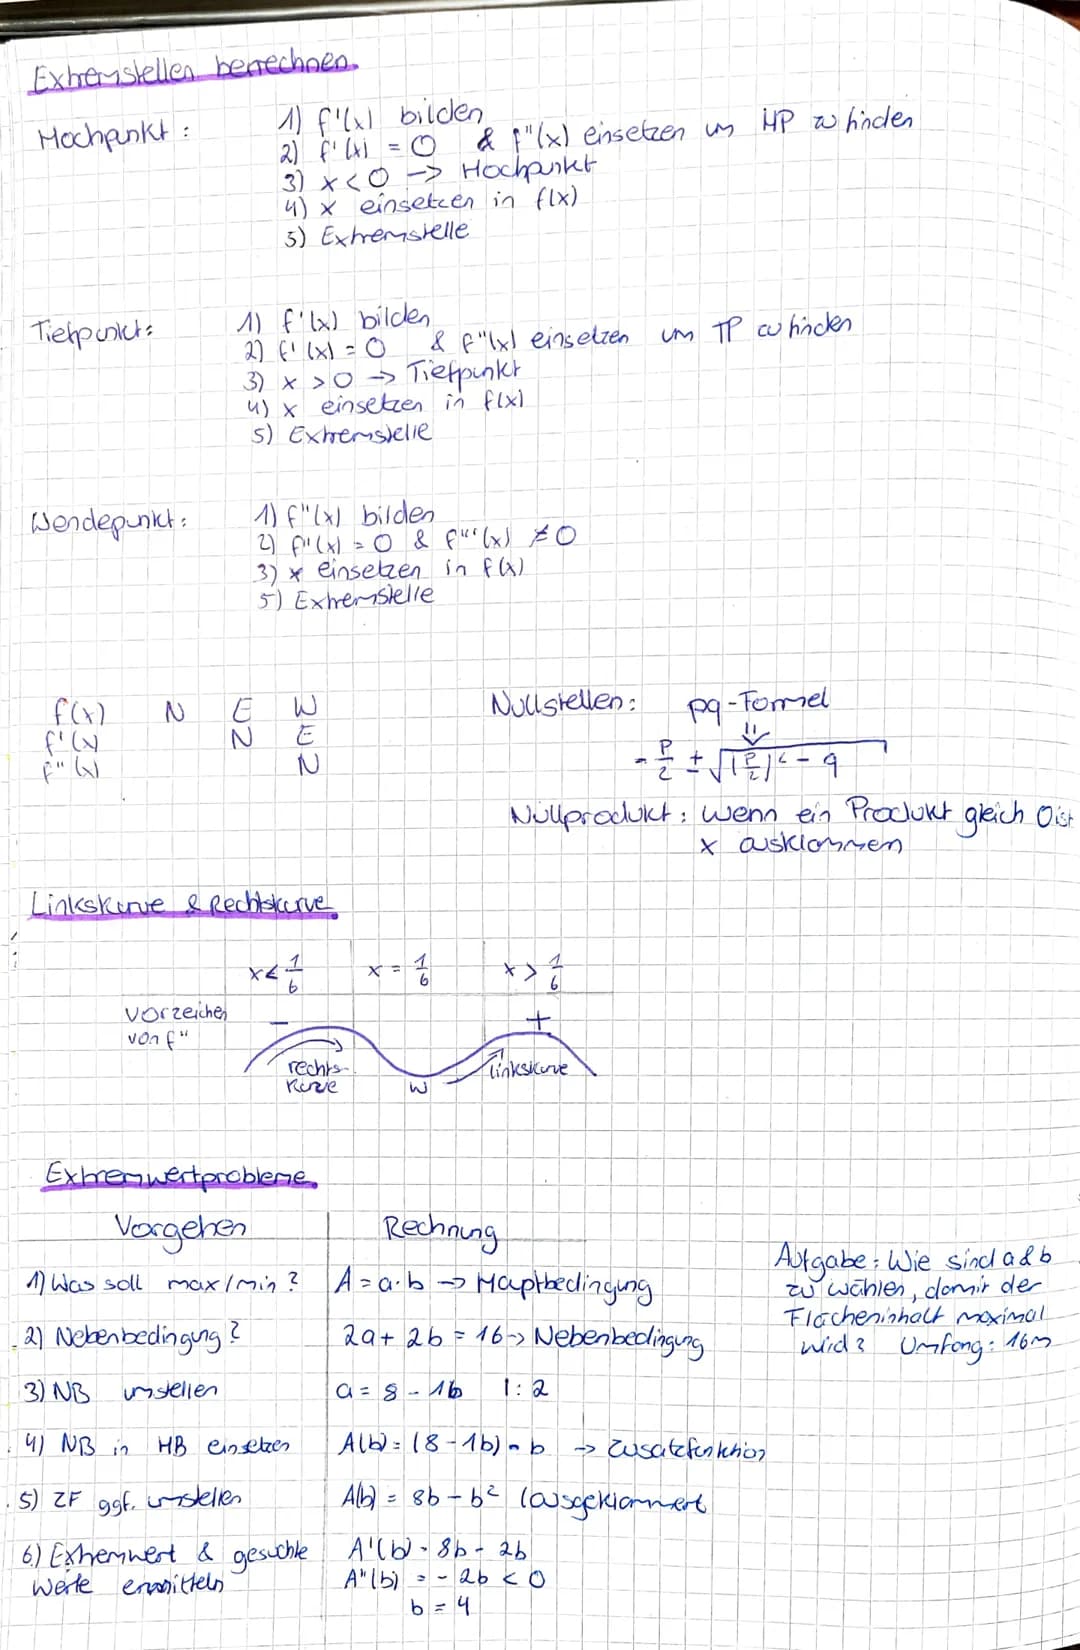 Extremstellen berrechnen.
Hochpunkt :
1) f'(x) bilden
2) f'(x) = 0 & f"(x) einsetzen um HP zu finden
3) x < 0 -> Hochpunkt
4) x einsetzen in f(x)
5) Extremstelle
Tiefpunkt:
1) f'(x) bilden
2) f'(x) = 0 & f"(x) einsetzen um TP zu finden
3) x > 0 -> Tiefpunkt
4) x einsetzen in f(x)
5) Extremstelle
Wendepunkt:
1) f"(x) bilden
2) f"(x) = 0 & f"'(x) ≠ 0
3) x einsetzen in f(x)
5) Extremstelle
f(x) N E W
f'(x) N E
f"(x) N
Nullstellen: pq-Formel
⇓
- p/2 ± √(p/2)² - q
Nullprodukt: Wenn ein Produkt gleich 0 ist
x ausklammen
Linkskurve & Rechtskurve
x < 1/6 x = 1/6 x > 1/6
Vorzeichen - +
von f"
rechts- linkskurve
kurve W
Extremwertprobleme
Vorgehen Rechnung
1) Was soll max/min? A = a·b -> Hauptbedingung
2) Nebenbedingung? 2a + 2b = 16 -> Nebenbedingung
3) NB umstellen a = 8 - 1b | : 2
4) NB in HB einsetzen A(b) = (8 - 1b) · b -> Zusatzfunktion
5) ZF ggf. umstellen A(b) = 8b - b² (ausgeklammert
6.) Extremwert & gesuchte A'(b) = 8b - 2b
Werte ermitteln A"(b) = - 2b < 0
b = 4
Aufgabe: Wie sind a & b
zu wählen, damit der
Flächeninhalt maximal
wird? Umfang: 16m